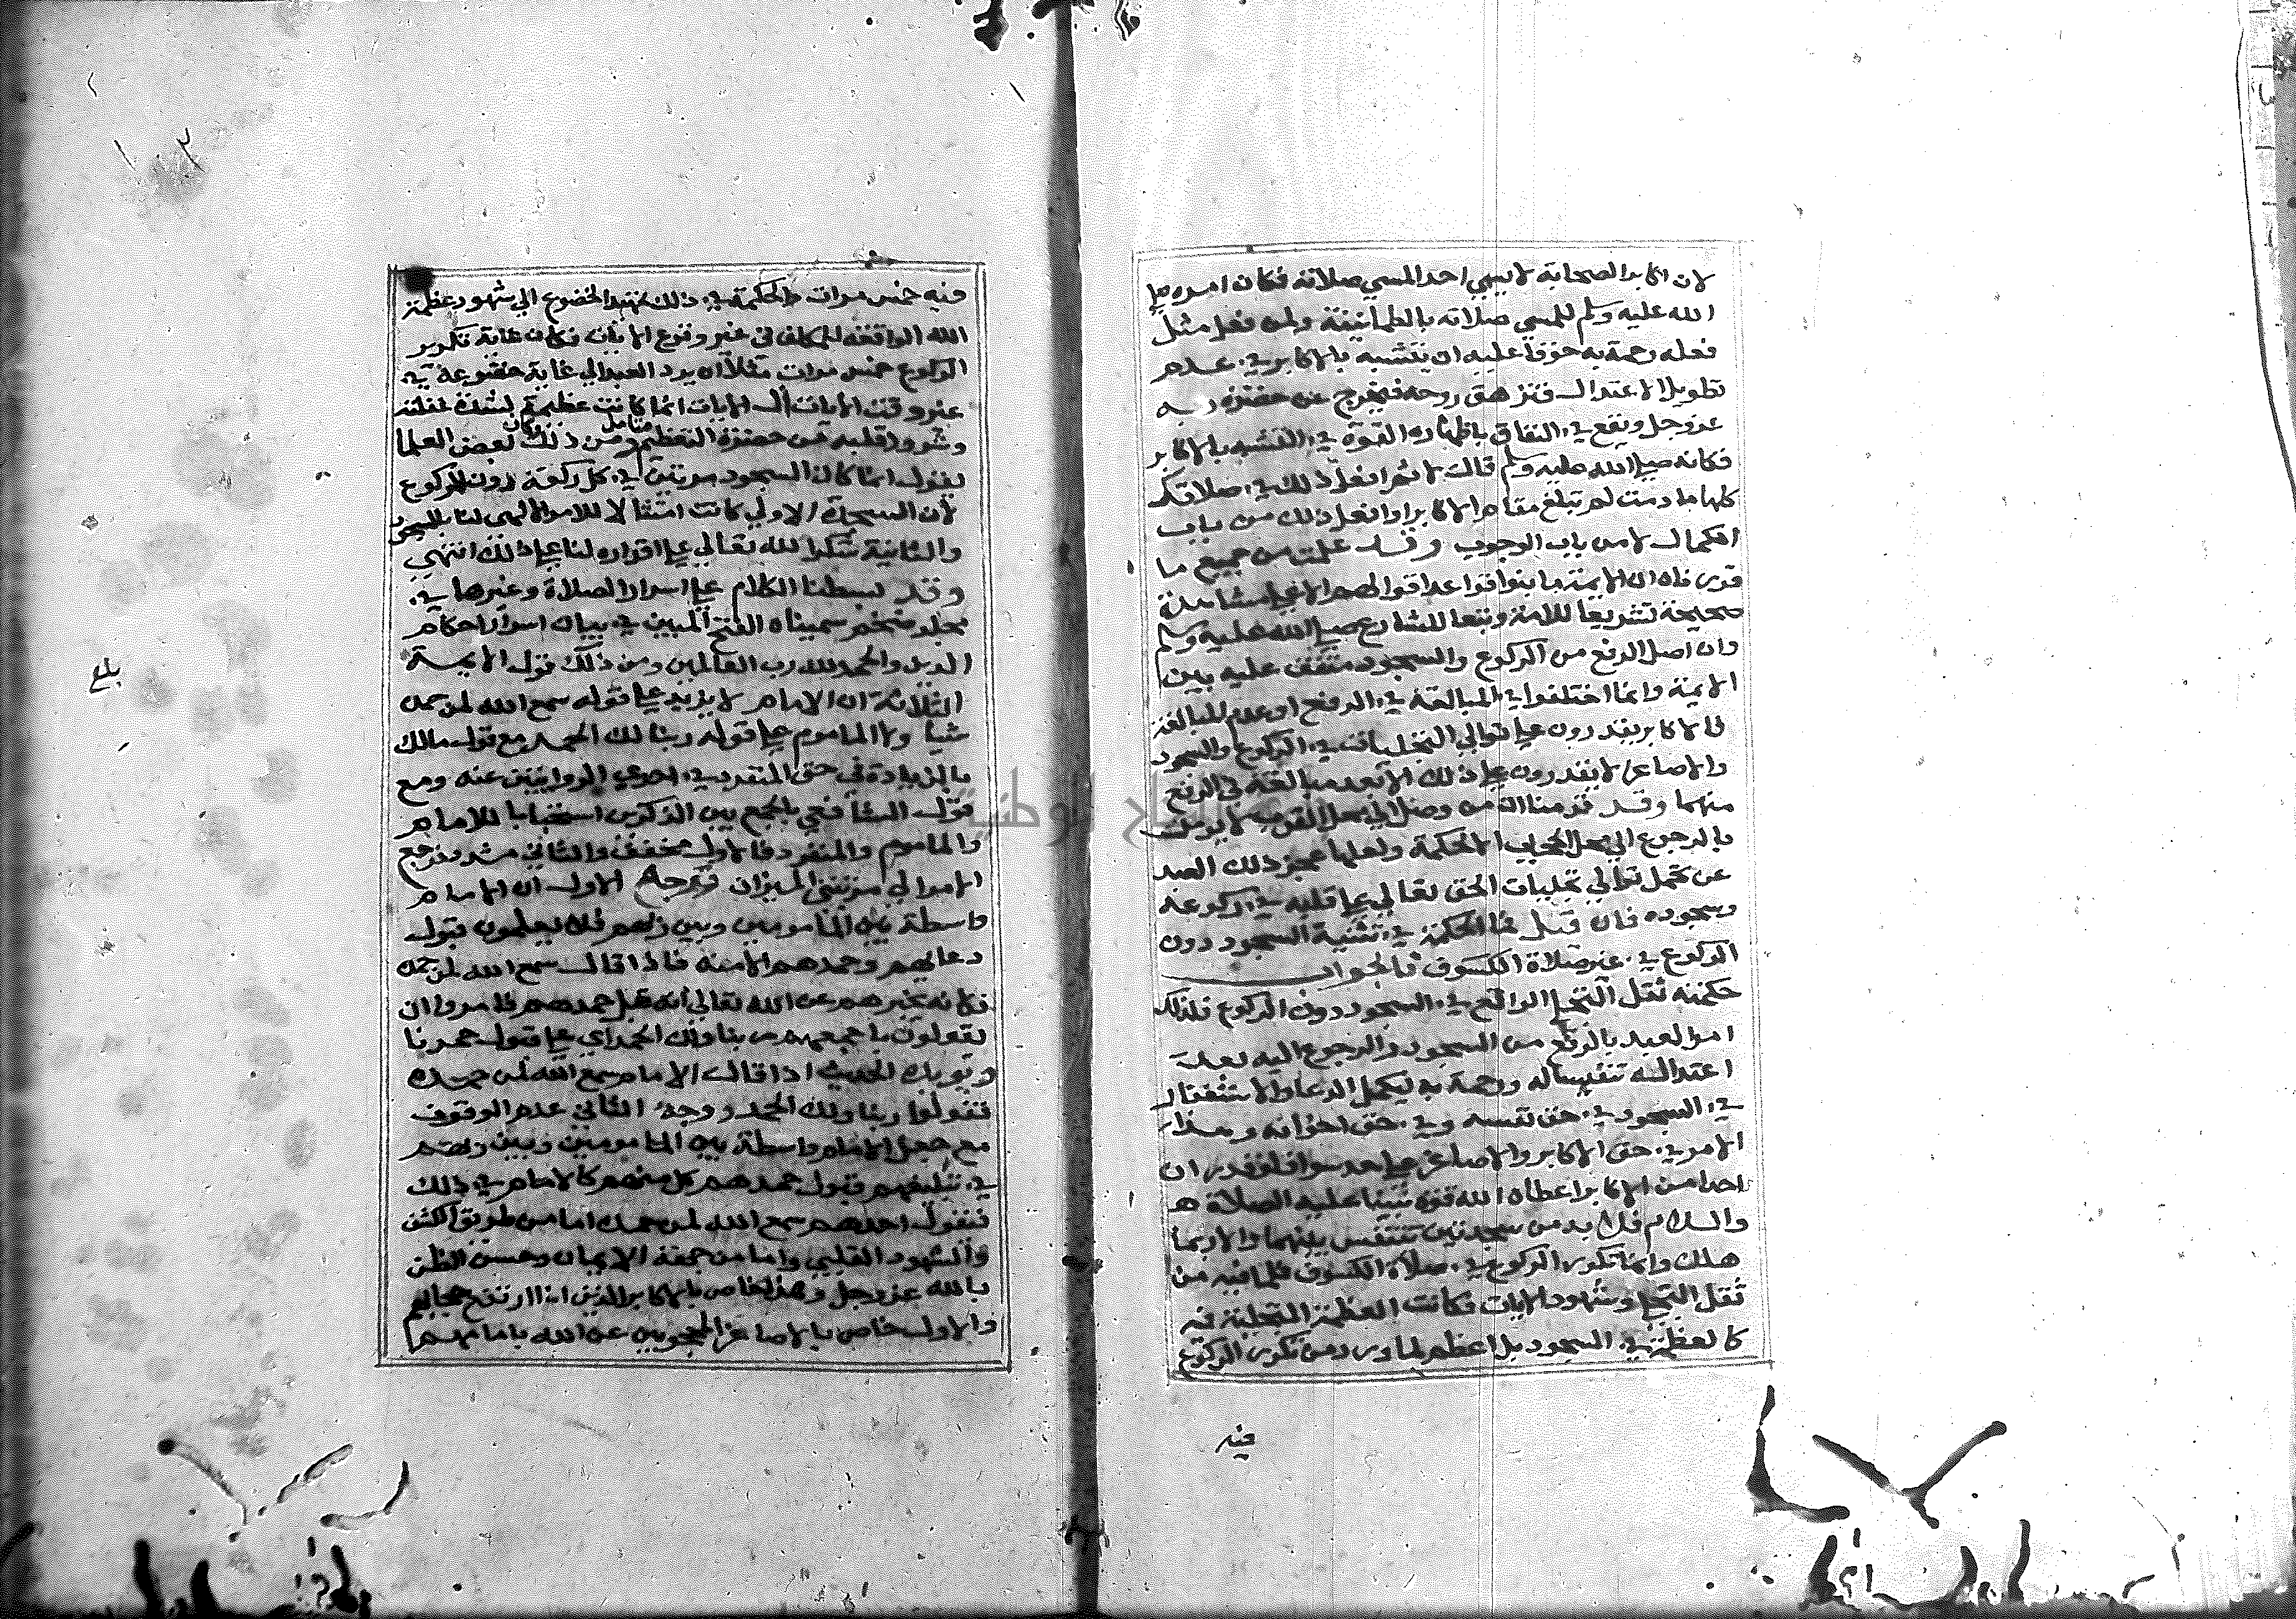 لان اكابر الصحابة لا يسمي احد المسي صلاته فكان امره صلي
الله عليه وسلم للمسي صلاته بالطمانينة ولمن فعل مثل
فعله رحمة به خوفا عليه ان يتشبه بالاكابر في عدم
تطويل الاعتدال فتزهق روحه فيخرج عن حضرة ربه
عز وجل ويقع في النفاق باظهاره القوة في التشبه بالاكابر
فكانه صلي الله عليه وسلم قال له ثم افعل ذلك في صلاتك
كلها ما دمت لم تبلغ مقام الاكابر او افعل ذلك من باب
الكمال لا من باب الوجوب وقد علمت من جميع ما
قررناه ان الايمة ما بنوا قواعد اقوالهم الا علي مشاهدة
صحيحة تشريعا للامة وتبعا للشارع صلي الله عليه وسلم
وان اصل الرفع من الركوع والسجود متفق عليه بين
الايمة وانما اختلفوا في المبالغة في الرفع او عدم المبالغة
فالاكابر يقدرون علي توالي التجليات في الركوع والسجود
والاصاغر لا يقدرون علي ذلك الا بعد مبالغة في الرفع
منهما وقد قدمنا ان من وصل الي محل القرب لا يومر
بالرجوع الي محل الحجاب الا لحكمة ولعلها عجز ذلك العبد
عن تحمل توالي تجليات الحق تعالي علي قلبه في ركوعه
وسجوده فان قيل فما الحكمة في تثنية السجود دون
الركوع في غير صلاة الكسوف فالجواب
حكمته ثقل التجلي الواقع في السجود دون الركوع فلذلك
امر العبد بالرفع من السجود والرجوع اليه بعد
اعتداله تنفيسا له ورحمة به ليكمل الدعا والاستغفار
في السجود في حق نفسه وفي حق اخوانه وهذا
الامر في حق الاكابر والاصاغر علي حد سوا فلو قدر ان
احدا من الاكابر اعطاه الله قوة نبينا عليه الصلاة
والسلام فلا بد من سجدتين يتنفس بينهما والا ربما
هلك وانما تكرر الركوع في صلاة الكسوف فلما فيه من
ثقل التجلي وشهود الايات فكانت العظمة المتجلية فيه
كالعظمة في السجود بل اعظم لما ورد من تكرر الركوع
فيه
فيه خمس مرات والحكمة في ذلك تمهيد الخضوع الي شهود عظمة
الله الواقعة للمكلف في غير وقوع الايات فكان غاية تكرير
الركوع خمس مرات مثلا ان يرد العبد الي غاية خضوعه في
غير وقت الايات اذ الايات انما كانت عظيمة لشدة غفلته
وشرود قلبه عن حضرة التعظيم فتامل ومن ذلك وكان بعض العلما
يقول انما كان السجود مرتين في كل ركعة دون الركوع
لان السجدة الاولي كانت امتثالا للامر الالهي لنا بالسجود
والثانية شكرا لله تعالي علي اقداره لنا علي ذلك انتهي
وقد بسطنا الكلام علي اسرار الصلاة وغيرها في
مجلد ضخم سميناه الفتح المبين في بيان اسرار احكام
الدين والحمد لله رب العالمين ومن ذلك قول الايمة
الثلاثة ان الامام لا يزيد علي قوله سمع الله لمن حمده
شيا ولا الماموم علي قوله ربنا لك الحمد مع قول مالك
بالزيادة في حق المنفرد في احدي الروايتين عنه ومع
قول الشافعي بالجمع بين الذكرين استحبابا للامام
والماموم والمنفرد فالاول مخفف والثاني مشدد فرجع
الامر الي مرتبتي الميزان ووجه الاول ان الامام
واسطة بين المامومين وبين ربهم فلا يعلمون قبول
دعايهم وحمدهم الا منه فاذا قال سمع الله لمن حمده
فكانه يخبرهم عن الله تعالي انه قبل حمدهم فامروا ان
يقولوا باجمعهم ربنا ولك الحمد اي علي قبول حمدنا
ويويده الحديث اذا قال الامام سمع الله لمن حمده
فقولوا ربنا ولك الحمد ووجه الثاني عدم الوقوف
مع جعل الامام واسطة بين المامومين وبين ربهم
في تبليغهم قبول حمدهم كل منهم كالامام في ذلك
فيقول احدهم سمع الله لمن حمده اما من طريق الكشف
والشهود القلبي واما من جهة الايمان وحسن الظن
بالله عز وجل وهذا خاص بالاكابر الذين ارتفع حجابهم
والاول خاص بالاصاغر المحجوبين عن الله بامامهم
بلغ